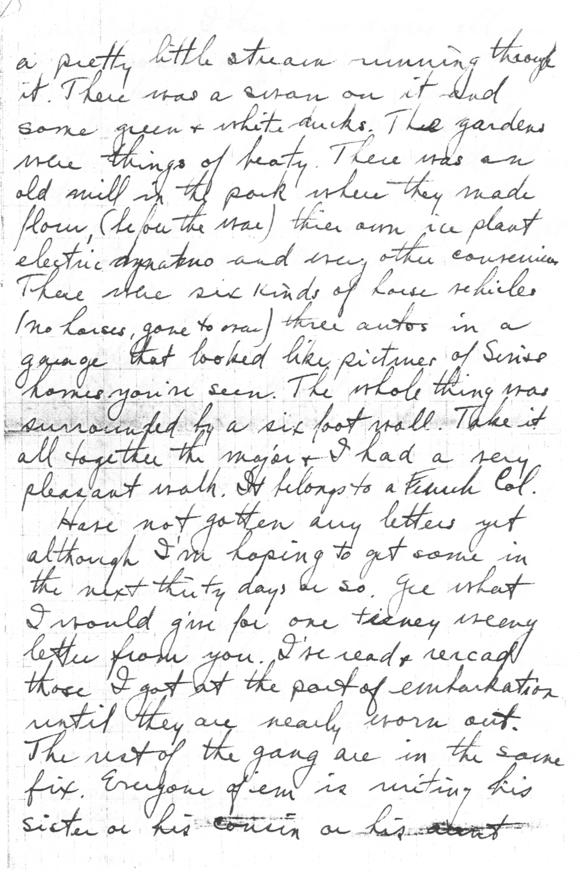 a pretty little stream running through
it. There was a swan on it and
some green + white ducks. The gardens
were things of beaty. There was an
old mill in the park where they made
flour, (before the war) thier own ice plant
electric and every other convenience
There were six kinds of horse vehicles
(no horses, gone to war) three autos in a
garage that looked like pictures of Swiss
homes you've seen. The whole thing was
surrounded by a six foot wall. Take it
all together the major + I had a very
pleasant walk. It belongs to a French Col.
Have not gotten any letters yet
although I'm hoping to get some in
the next thirty days or so. Gee what
I would give for one teeney weeny
letter from you. I've read + reread
those I got at the port of embarkation
until they are nearly worn out.
The rest of the gang are in the same
fix. Everyone of em is writing his
sister or his cousin or his aunt